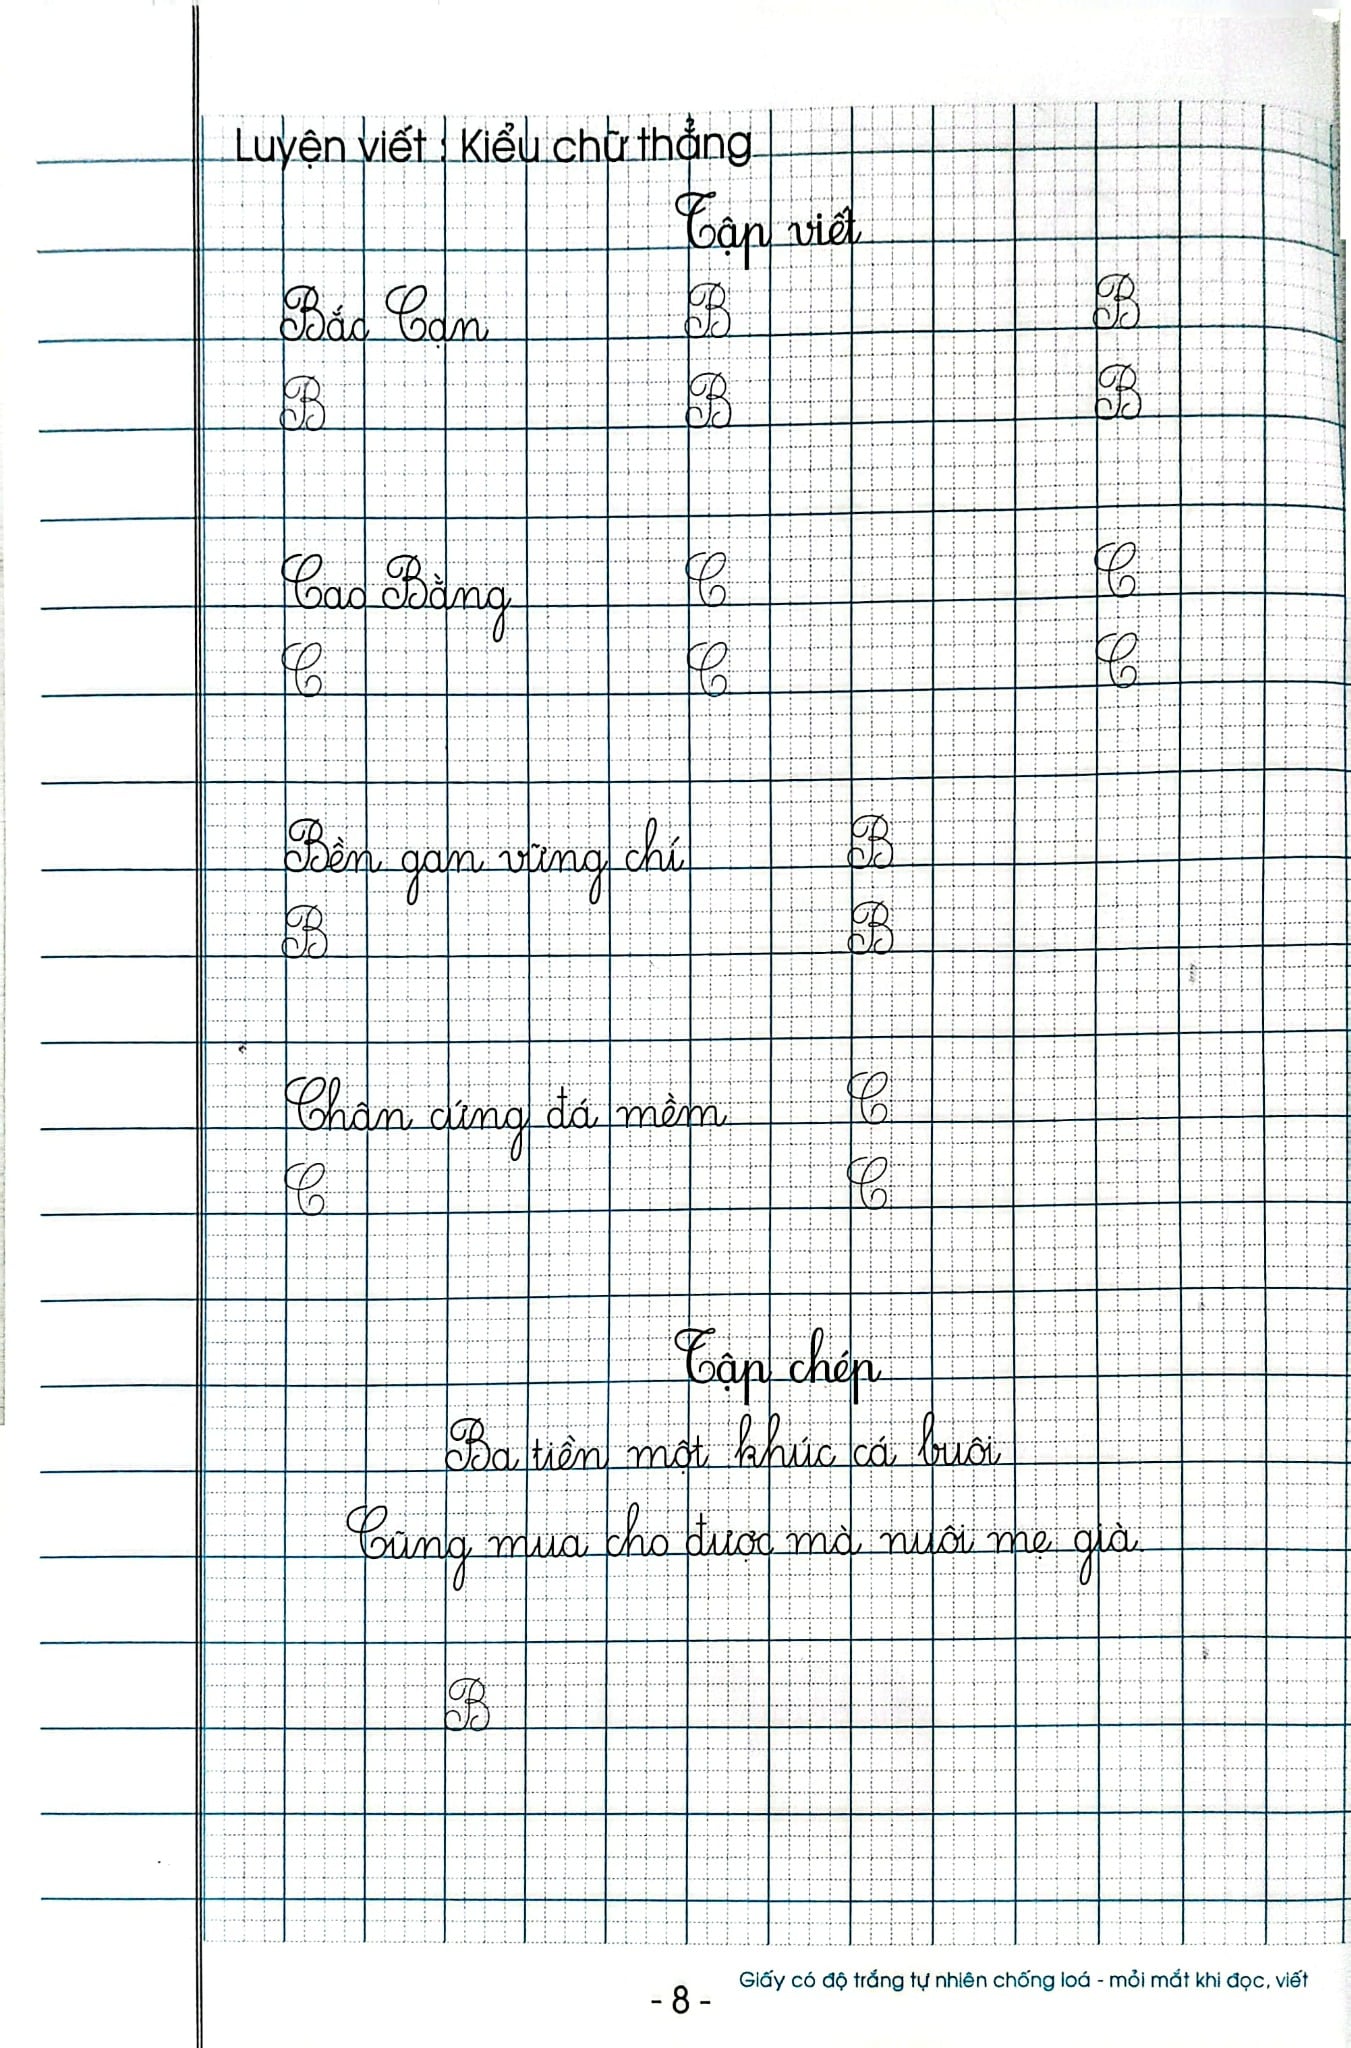 Luyện viết : Kiểu chữ thẳng
Tập viết
Bắc Cạn B B
B B B
Cao Bằng C C
C C C
Bền gan vững chí B
B B
Chân cứng đá mềm C
C C
Tập chép
Ba tiền một khúc cá buôi
Cũng mua cho được mà nuôi mẹ già
B
Giấy có độ trắng tự nhiên chống loá - mỏi mắt khi đọc, viết
- 8 -